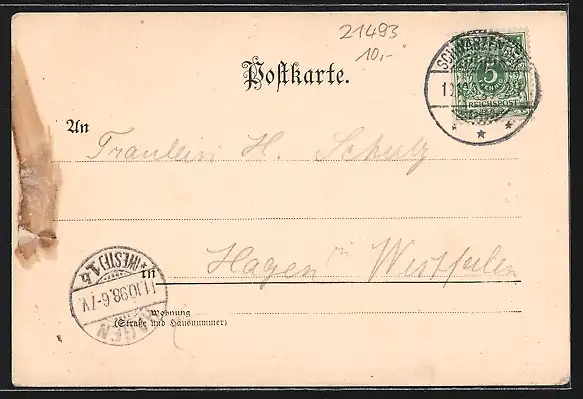 21493
10,-
Postkarte.
SCHWARZEN
5
REICHSPOST
An
Fräulein H. Schulz
in
Hagen in Westfalen
Wohnung
(Straße und Hausnummer)
HAGEN
11.10.98.6-7.V.
*(WESTF.)1b